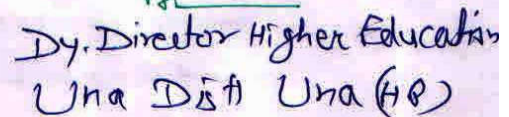 Dy. Director Higher Education
Una Distt Una (HP)